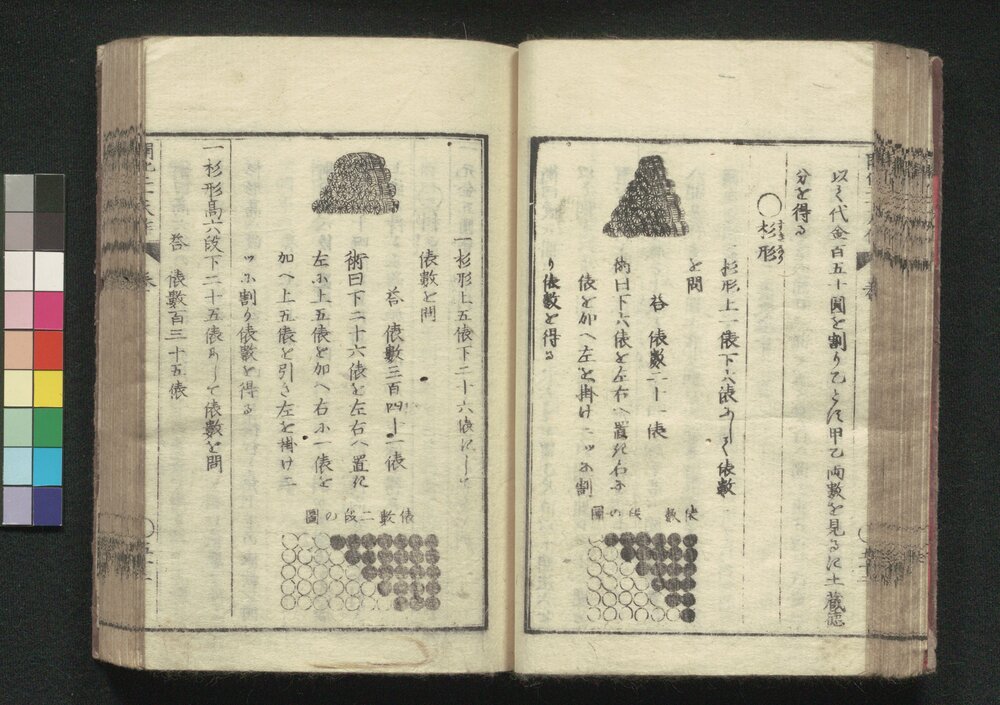 以て代金百五十圓を割り乙とす甲乙両数を見るに土蔵徳
分を得る
〇杉形
すぎなり
一杉形上一俵下六俵ありて俵數
を問
答 俵數二十一俵
術曰下六俵を左右へ置き右に
俵を加へ左を掛け二ツに割
り俵數を得る
俵數二段の圖
一杉形上五俵下二十六俵
俵數を問
答 俵數三百四十一俵
術曰下二十六俵を左右へ置き
左に上五俵を加へ右に一俵を
加へ上五俵を引き左を掛け二
ツに割り俵數を得る
俵數二段の圖
一杉形高六段下二十五俵ありて俵數を問
答 俵數百三十五俵